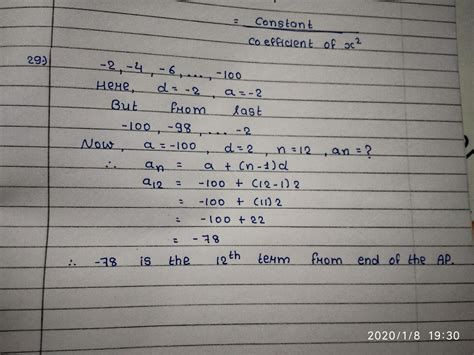 = Constant
Coefficient of x²
29) -2, -4, -6, ..., -100
Here, d = -2, a = -2
But from last
-100, -98, ... -2
Now, a = -100, d = 2, n = 12, an = ?
∴ an = a + (n-1)d
a12 = -100 + (12-1)2
= -100 + (11)2
= -100 + 22
= -78
∴ -78 is the 12th term from end of the AP.
2020/1/8 19:30